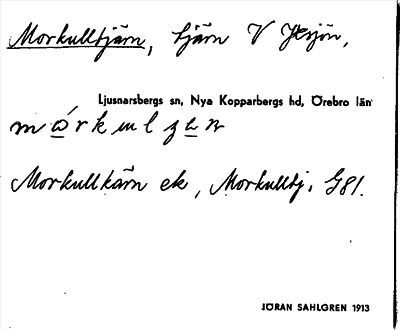 Morkulltjärn, tjärn V Yxsjön,
Ljusnarsbergs sn, Nya Kopparbergs hd, Örebro län
Morkullkärn ek, Morkulltj. G81.
JÖRAN SAHLGREN 1913